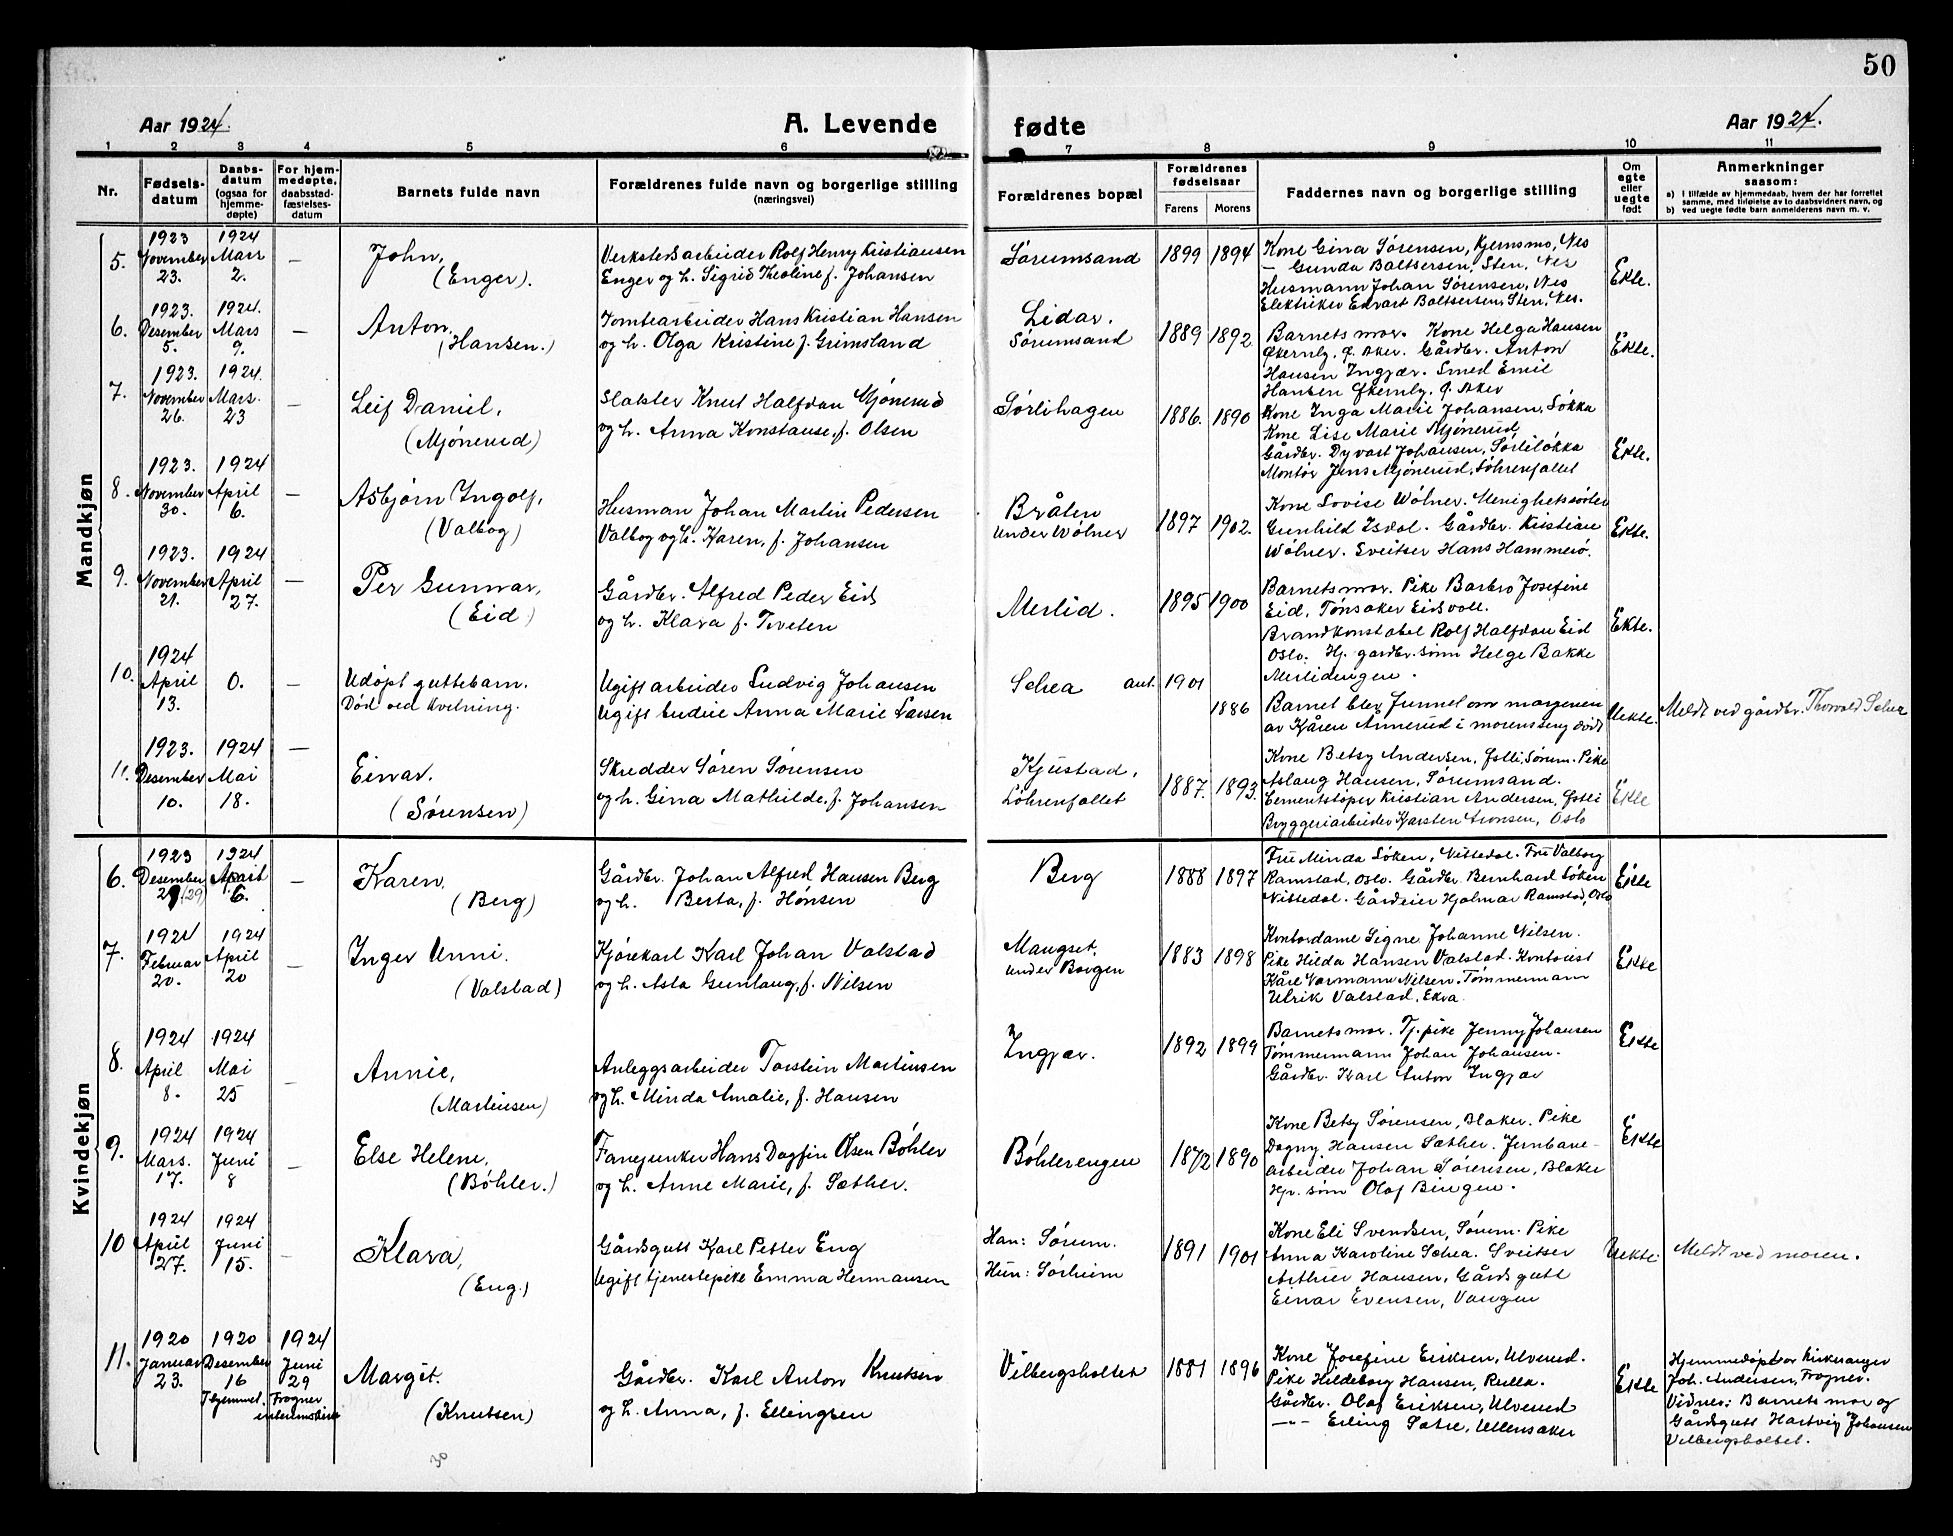 50
Aar 1924.
A. Levende
fødte
Aar 1924.
1 2 3 4 5 6 7 8 9 10 11
Nr.
Fødsels-
datum
Daabs-
datum
(ogsaa for
hjemme-
døpte)
For hjem-
medøpte,
daabsstad-
fæstelses-
datum
Barnets fulde navn
Forældrenes fulde navn og borgerlige stilling
(næringsvei)
Forældrenes bopæl
Forældrenes
fødselsaar
Farens Morens
Faddernes navn og borgerlige stilling
Om
egte
eller
uegte
født
Anmerkninger
saasom:
a) I tilfælde av hjemmedaab, hvem der har forrettet
samme, med tilføielse av to daabsvidners navn, og
b) ved uegte fødte barn anmelderens navn m. v.
Mandkjøn
5.
1923
November
23.
1924
Mars
2.
—
John,
(Enger).
Verkstedsarbeider Rolf Henry Kristiansen
Enger og h. Sigrid Theoline f. Johansen
Sørumsand
1899 1894
Kone Gina Sørensen, Hjemsmo, Nes
— Gunda Baltsersen, Sten, Nes
Husmann Johan Sørensen, Nes
Elektriker Edvart Baltsersen, Sten, Nes.
Ekte.
6.
1923.
Desember
5.
1924.
Mars
9.
—
Anton,
(Hansen.)
Tomtearbeider Hans Kristian Hansen
og h. Olga Kristine f. Grimsland
Lidar.
Sørumsand
1889 1892
Barnets mor. Kone Helga Hansen
Økernly, Ø. Aker. Gårdbr. Anton
Hansen Ingjær. Smed Emil
Hansen Økernly, Ø. Aker
Ekte.
7.
1923.
November
26.
1924.
Mars.
23
—
Leif Daniel,
(Mjønerud)
Slakter Knut Halfdan Mjønerud
og h. Anna Konstanse, f. Olsen
Sørlihagen
1886. 1890
Kone Inga Marie Johansen, Løkka
Kone Lise Marie Mjønerud,
Gårdbr. Dyvart Johansen, Sørliløkka
Montør Jens Mjønerud, Løhrenfallet
Ekte.
8.
1923.
November
30.
1924
April
6.
—
Asbjørn Ingolf,
(Valbog)
Husman Johan Martin Pedersen
Valbog og h. Karen, f. Johansen
Bråten
under Wølner
1897 1902.
Kone Lovise Wølner. Menighetssøster
Gunhild Isdal. Gårdbr. Kristian
Wølner. Sveitser Hans Hammerø.
Ekte.
9.
1923.
November
21.
1924
April
27.
—
Per Gunnar,
(Eid)
Gårdbr. Alfred Peder Eid
og h. Klara f. Tveten
Merlid.
1895 1900
Barnets mor. Pike Barbro Josefine
Eid, Tønsaker Eidsvoll.
Brandkonstabel Rolf Halfdan Eid
Oslo. Hj. gårdbr. sønn Helge Bakke
Merlidengen.
Ekte.
10.
1924
April
13.
0.
—
Udøpt guttebarn.
Død ved kvelning.
Ugift arbeider Ludvig Johansen
Ugift budeie Anna Marie Larsen
Selna ant. 1901
1886
Barnet blev funnet om morgenen
av Kåren Annerud i morens seng dødt
Uekte.
Meldt ved gårdbr. Thorvald Selna
11.
1923.
Desember
10.
1924
Mai
18.
—
Einar.
(Sørensen)
Skredder Søren Sørensen
og h. Gina Mathilde, f. Johansen
Kjustad,
Løhrenfallet
1887. 1893.
Kone Betsy Andersen, Østli, Sørum. Pike
Aslaug Hansen, Sørumsand.
Cementstøper Kristian Andersen, Østli
Bryggeriarbeider Karsten Aronsen, Oslo
Ekte
Kvindekjøn
6.
1923
Desember
29 (29)
1924
April
6.
—
Karen,
(Berg)
Gårdbr. Johan Alfred Hansen Berg
og h. Berta, f. Hønsen
Berg
1888 1897
Fru Minda Løken, Nittedal. Fru Valborg
Ramstad, Oslo. Gårdbr. Bernhard Løken
Nittedal. Gårdeier Hjalmar Ramstad, Oslo
Ekte
7.
1924
Februar
20.
1924
April
20
—
Inger Unni.
(Valstad)
Kjørekarl Karl Johan Valstad
og h. Asta Gunlaug, f. Nilsen
Maugset,
under Borgen
1883 1898
Kontordame Signe Johanne Nilsen.
Pike Hilda Hansen Valstad. Kontorist
Kåre Normann Nilsen. Tømmermann
Ulrik Valstad, Ekva.
Ekte
8.
1924
April
8.
1924
Mai
25
—
Annie,
(Martinsen)
Anleggsarbeider Torstein Martinsen
og h. Minda Amalie, f. Hansen
Ingjær.
1892 1899
Barnets mor. Tj. pike Jenny Johansen
Tømmermann Johan Johansen.
Gårdbr. Karl Anton Ingjær
Ekte
9.
1924
Mars.
17.
1924
Juni
8
—
Else Helene,
(Bøhler.)
Fanejunker Hans Dagfin Olsen Bøhler
og h. Anne Marie, f. Sæther.
Bøhlerengen
1872 1890
Kone Betsy Sørensen, Blaker. Pike
Dagny Hansen Sæther. Jernbane-
arbeider Johan Sørensen, Blaker
Hjv. sønn Olaf Bingen.
Ekte
10
1924
April
27.
1924
Juni
15.
—
Klara,
(Eng.)
Gårdsgutt Karl Petter Eng
Ugift tjenestepike Emma Hermansen
Han: Sørum.
Hun: Sørheim
1891 1901
Kone Eli Svendsen, Sørum. Pike
Anna Karoline Sæhea. Sveitser
Arthur Hansen, Gårdsgutt
Einar Evensen, Vangen
Uekte.
Meldt ved moren.
11.
1920
Januar
23.
1920
Desember
16
I hjemmet.
1924
Juni
29
Frogner
interimskirke
Margit.
(Knutsen)
Gårdbr. Karl Anton Knutsen
og h. Anna, f. Ellingsen
Vilbergsholtet
1881 1896
Kone Josefine Eriksen, Ulverud.
Pike Hildeborg Hansen, Rulla.
Gårdbr. Olaf Eriksen, Ulverud
—"— Erling Sætre, Ullensaker
Ekte
Hjemmedøpt av kirkesanger
Joh. Andersen, Frogner.
Vidner: Barnets mor og
Gårdsgutt Hartvig Johansen
Vilbergsholtet.
30